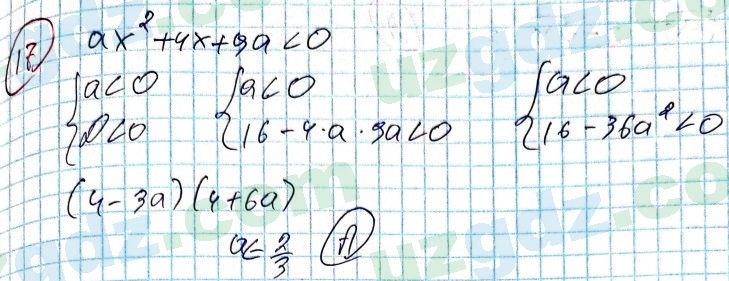 17
ax² + 4x + 9a < 0
{ a < 0 { a < 0 { a < 0
{ D < 0 { 16 - 4 · a · 9a < 0 { 16 - 36a² < 0
(4 - 3a)(4 + 6a)
a < 2/3 A
uzgdz.com